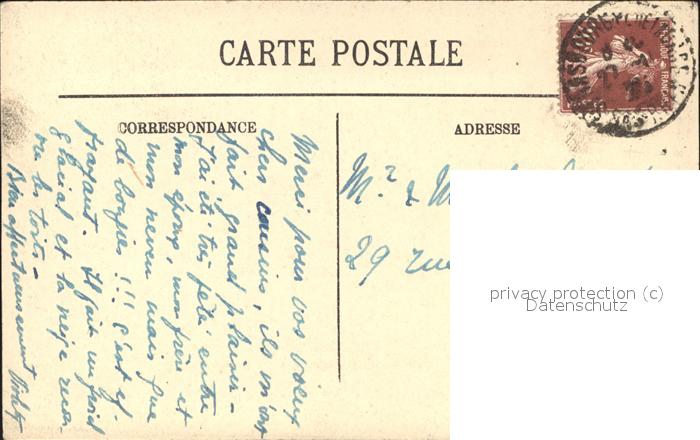 CARTE POSTALE
CORRESPONDANCE
ADRESSE
Merci pour vos voeux
chers cousins, ils m'ont
fait grand plaisir -
J'ai été très fêté entre
mon époux, mon frère et
mon neveu mais que
de bougies !!! c'est ef-
frayant. Il fait un froid
glacial et la neige recou-
vre les toits -
Bien affectueusement
Mr & M
29 rue
privacy protection (c)
Datenschutz